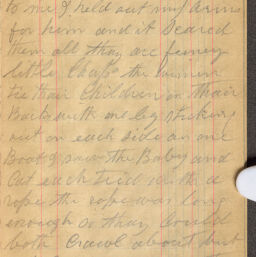 to me I held out my arms
for him and it Scared
them all they are funey
little Chaps the wimin
tie thair Children on thair
Backs with one leg sticking
out on each side on one
Boat I saw the Baby and
Cat each tied with a
rope the rope was long
enough so they Could
both Crawl about but